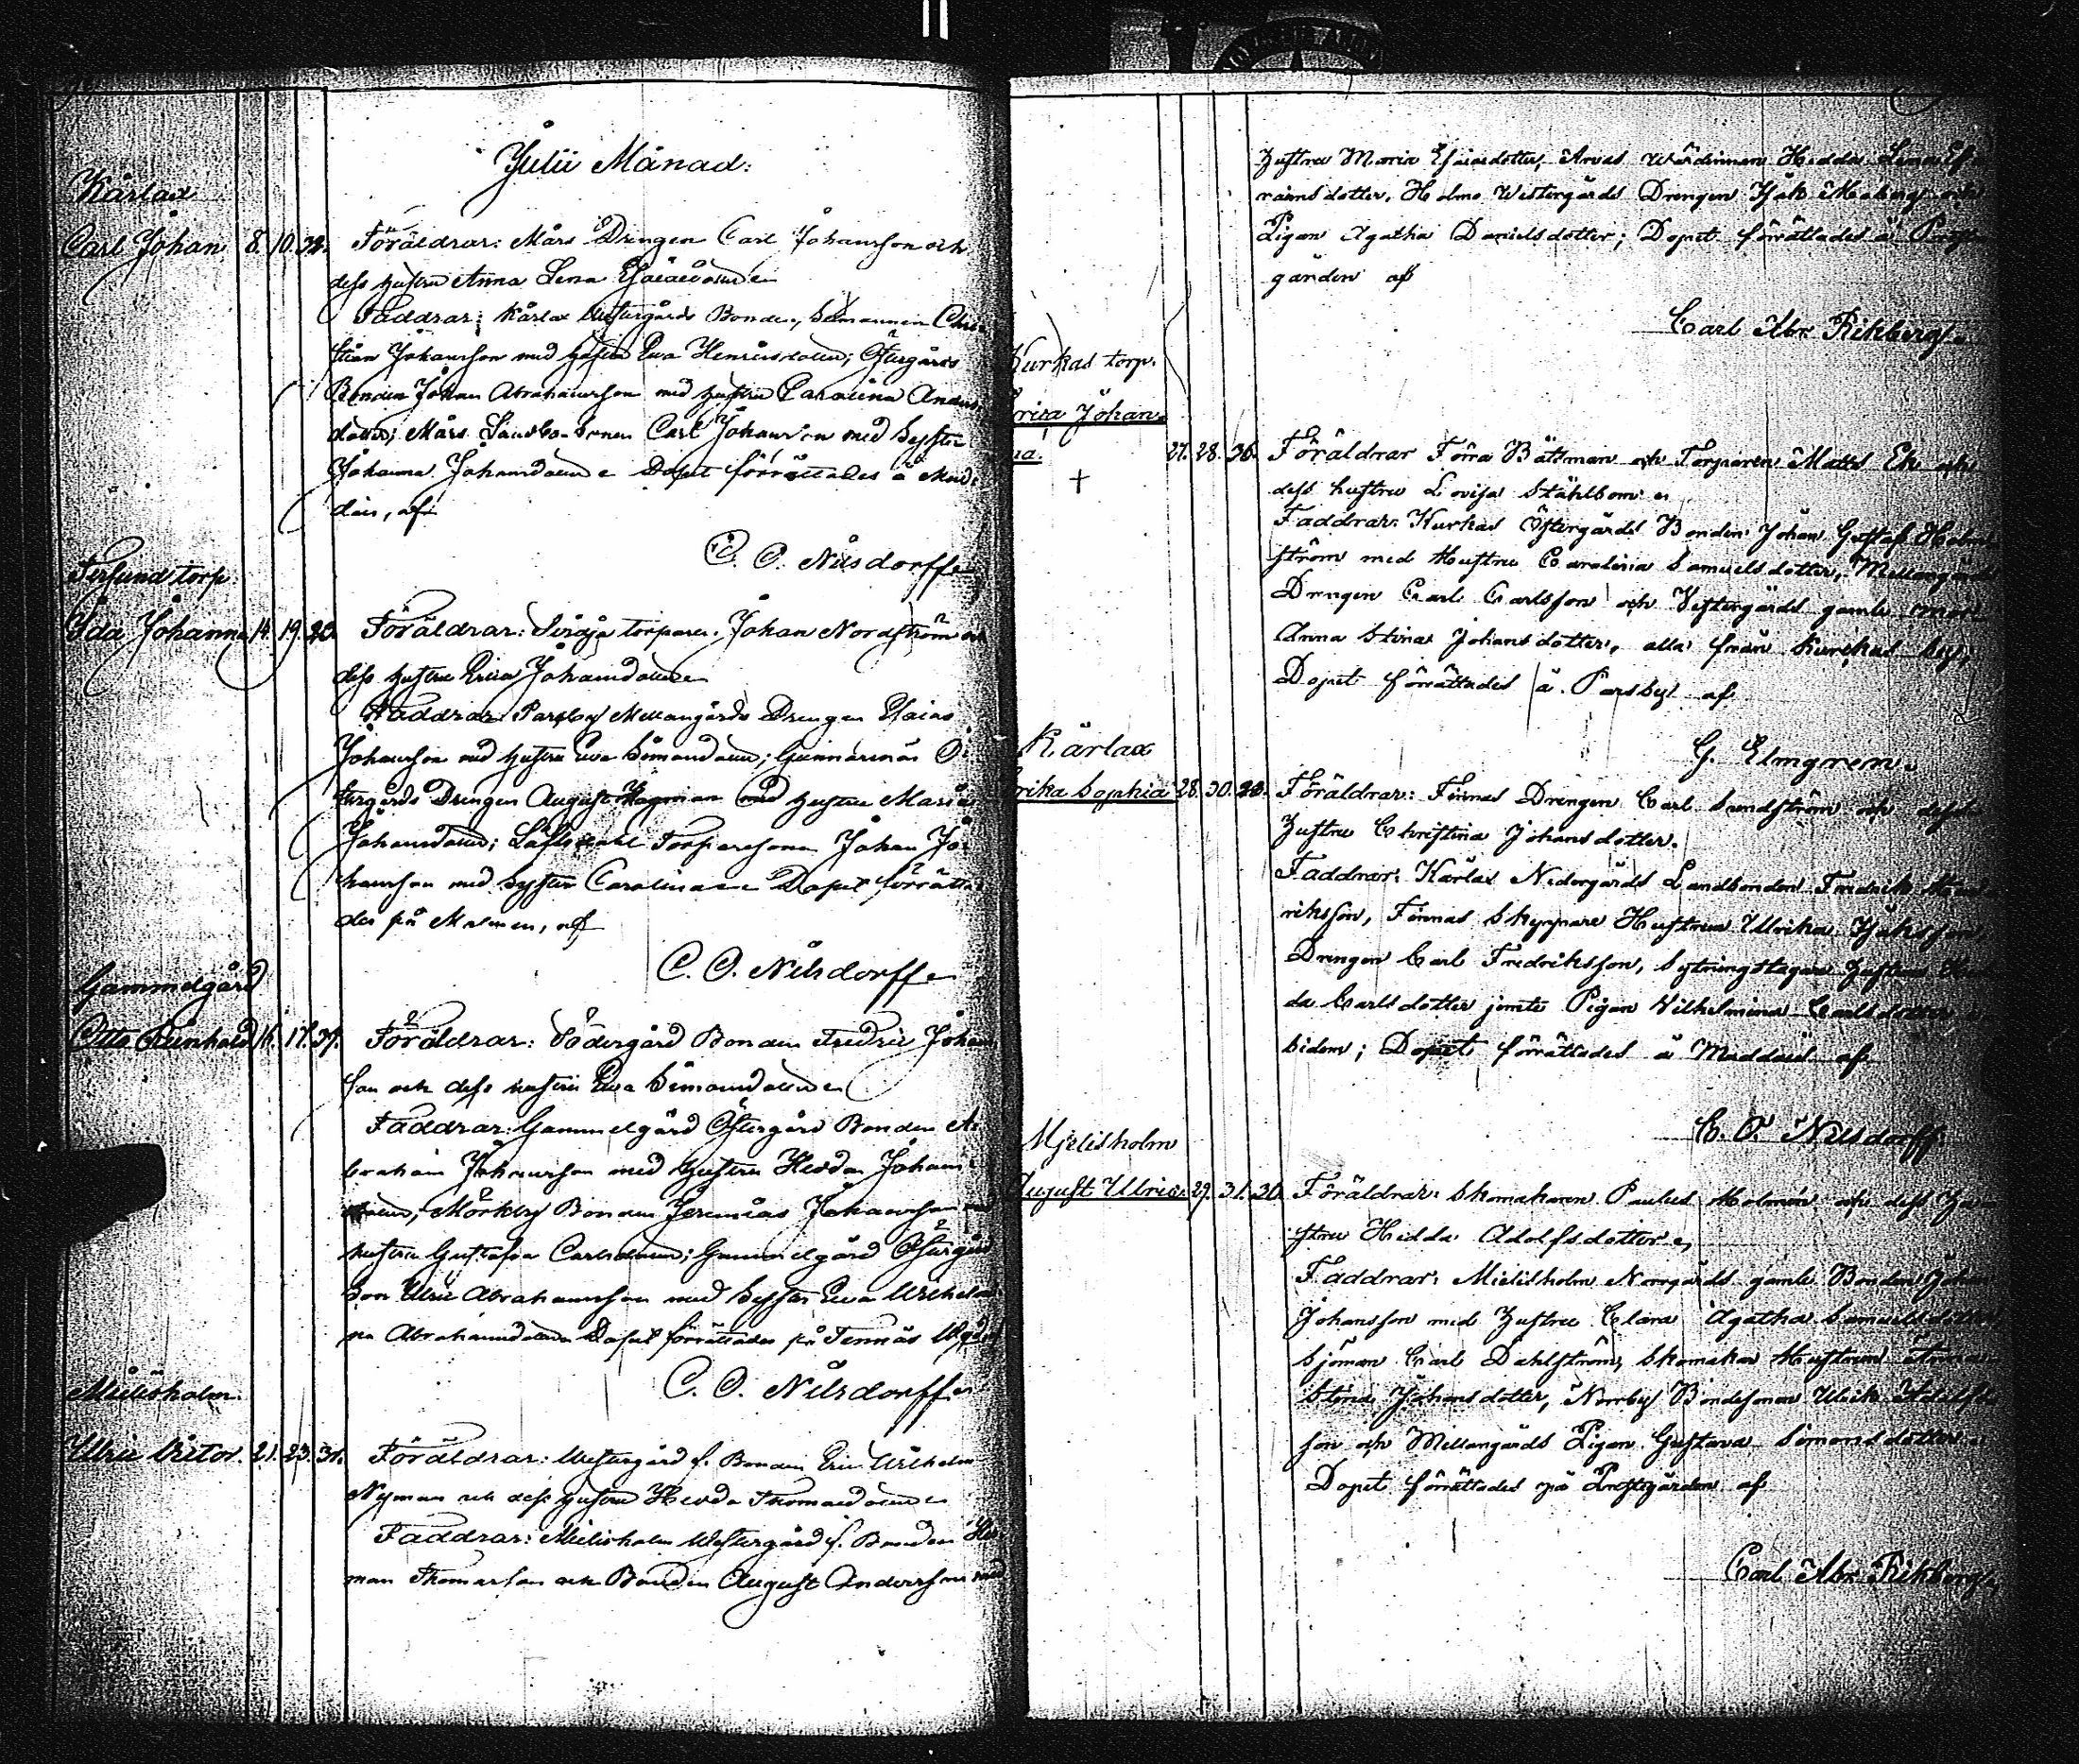 Julii Månad:
Kårlax
Carl Johan 8. 10. 32. Föräldrar: Mårs Drengen Carl Johansson och
dess hustru Anna Lena Esaiædotter
Faddrar: Kårlax Westergårds Bonden, Sexmannen Chri-
stian Johansson med hustru Ewa Henricsdotter; Östergårds
Bonden Johan Abrahamsson med hustru Carolina Anders-
dotter; Mårs Landbosonen Carl Johansson med Syster
Johanna Johansdotter Dopet förrättades å Med-
dais, af
C. O. Nilsdorff
torp.
Ida Johanna 14. 19. 20. Föräldrar: torparen Johan Nordström och
dess hustru Erica Johansdotter
Faddrar: Parsby Mellangårds Drengen Esaias
Johansson med hustru Ewa Simonsdotter; Gunnarsnäs Ö-
stergårds Drengen August Hagman med hustru Maria
Johansdotter; Torparesonen Johan Jo-
hansson med Syster Carolina Dopet förrätta-
des på Malmen, af
C. O. Nilsdorff
Gammelgård
Otto Reinhold 16. 17. 37. Föräldrar: Södergård Bonden Fredric Johans-
son och dess hustru Ewa Simonsdotter
Faddrar: Gammelgård Östergård Bonden A-
braham Johansson med hustru Hedda Johans-
dotter, Mörkby Bonden Jeremias Johansson med
hustru Gustafva Carlsdotter; Gammelgård Östergård
Son Ulric Abrahamsson med Syster Ewa Wilhelmi-
na Abrahamsdotter Dopet förrättades på Tennäs
C. O. Nilsdorff
Mielisholm.
Ulric Victor. 21. 23. 31. Föräldrar: Westergård f. Bonden Eric Wilhelm
Nyman och dess hustru Hedda Thomasdotter
Faddrar: Mielisholm Westergård f. Bonden
man Thomasson och Bonden August Andersson med
Hustru Maria Esaiædotter, Arvas wärdinnan Hedda Lena
raimsdotter, Holma Westergårds Drengen Isak Moberg och
Pigan Agatha Danielsdotter; Dopet förrättades å
gården af
Carl Abr. Rikberg
Kurkas torp.
Erica Johan-
na. 27. 28. 36. Föräldrar Förra Båtsman och Torparen Matts Ek och
dess hustru Lovisa Ståhlbom
+
Faddrar: Kurkas Östergårds Bonden Johan Gustaf Holm-
ström med Hustru Carolina Samuelsdotter, Mellangårds
Drengen Carl Carlsson och Westergårds gamla mor
Anna Stina Johansdotter, alla från Kurkas by,
Dopet förrättades å Parsby af
G. Elmgren.
Kårlax
Erika Sophia 28. 30. 20. Föräldrar: Finnas Drengen Carl Sundström och dess
Hustru Christina Johansdotter.
Faddrar: Kårlax Nedergårds Landbonden Fredrik Hen-
riksson, Finnas Skeppare Hustrun Ulrika Isaksson,
Drengen Carl Fredriksson, Sytningstagare Hustrun
da Carlsdotter jemte Pigan Vilhelmina Carlsdotter
bidem; Dopet förrättades å Meddais af
C. O. Nilsdorff
Mjelisholm
August Ulric 29. 31. 30. Föräldrar: Skomakaren Paulus Holmén och dess Hu-
stru Hedda Adolfsdotter
Faddrar: Mielisholm Norrgårds gamle Bonden Johan
Johansson med Hustru Clara Agatha Samuelsdotter
Sjöman Carl Dahlström, Skomakar Hustrun Anna
Stina Johansdotter, Norrby Bondesonen Ulrik Adolfs-
son och Mellangårds Pigan Gustava Simonsdotter
Dopet förrättades på Prestgården af
Carl Abr. Rikberg